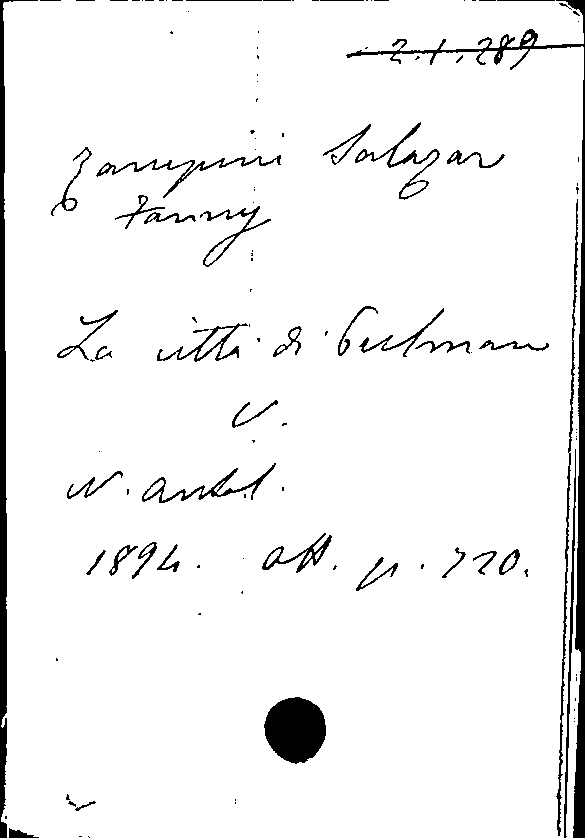 2.1.289
Zampini Salazar
Fanny
La città di Pullman
V.
N. Antol.
1894. ott. p. 720.